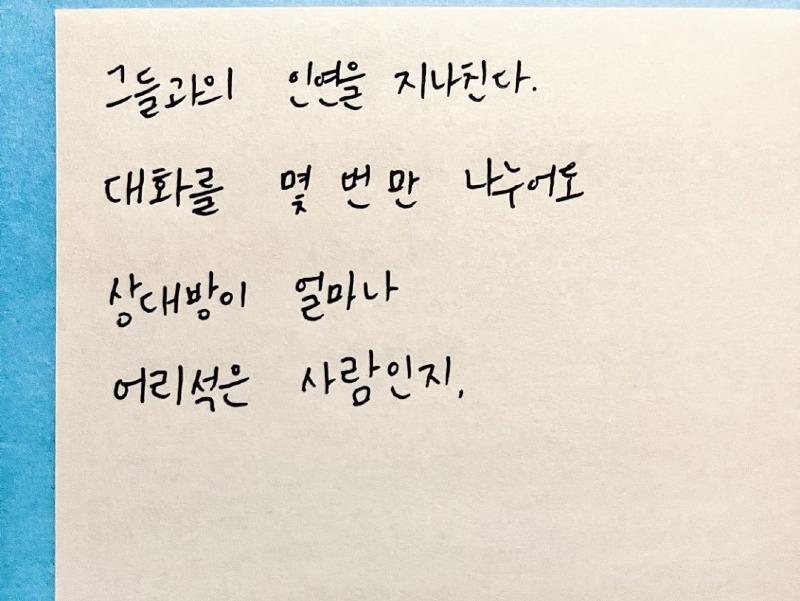 그들과의 인연을 지나친다.
대화를 몇 번만 나누어도
상대방이 얼마나
어리석은 사람인지,